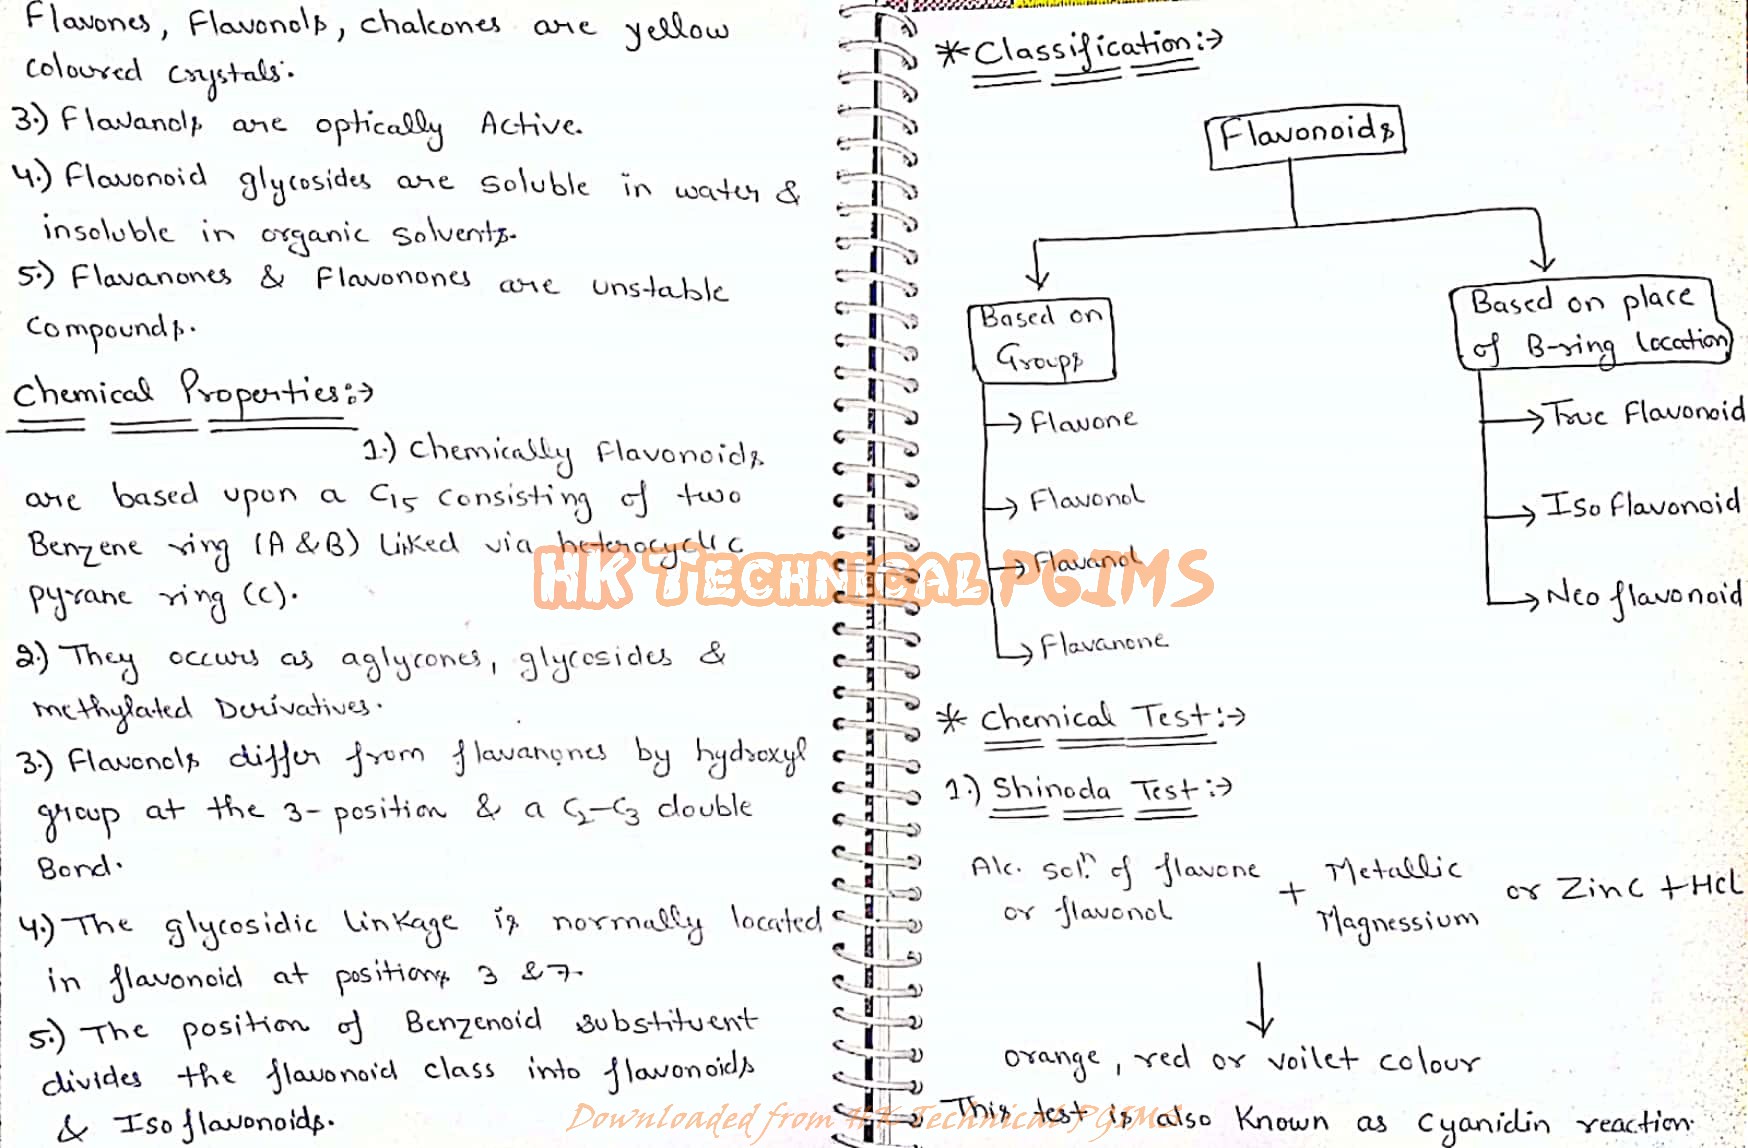 Flavones, Flavonols, chalcones are yellow
coloured crystals.
3.) Flavanols are optically Active.
4.) Flavonoid glycosides are soluble in water &
insoluble in organic solvents.
5.) Flavanones & Flavonones are unstable
compounds.
Chemical Properties:→
1.) Chemically Flavonoids
are based upon a C15 consisting of two
Benzene ring (A & B) linked via heterocyclic
pyrane ring (C).
2.) They occurs as aglycones, glycosides &
methylated Derivatives.
3.) Flavonols differ from flavanones by hydroxyl
group at the 3-position & a C2-C3 double
Bond.
4.) The glycosidic linkage is normally located
in flavonoid at positions 3 & 7.
5.) The position of Benzenoid substituent
divides the flavonoid class into flavonoids
& Isoflavonoids.
* Classification:→
Flavonoids
Based on
Groups
→ Flavone
→ Flavonol
→ Flavanol
→ Flavanone
Based on place
of B-ring location
→ True Flavonoid
→ Iso flavonoid
→ Neo flavonoid
* Chemical Test:→
1.) Shinoda Test:→
Alc. Solⁿ. of flavone + Metallic or Zinc + Hcl
or flavonol Magnessium
↓
orange, red or voilet colour
This test is also known as cyanidin reaction.
HK Technical PGIMS
Downloaded from HK Technical PGIMS